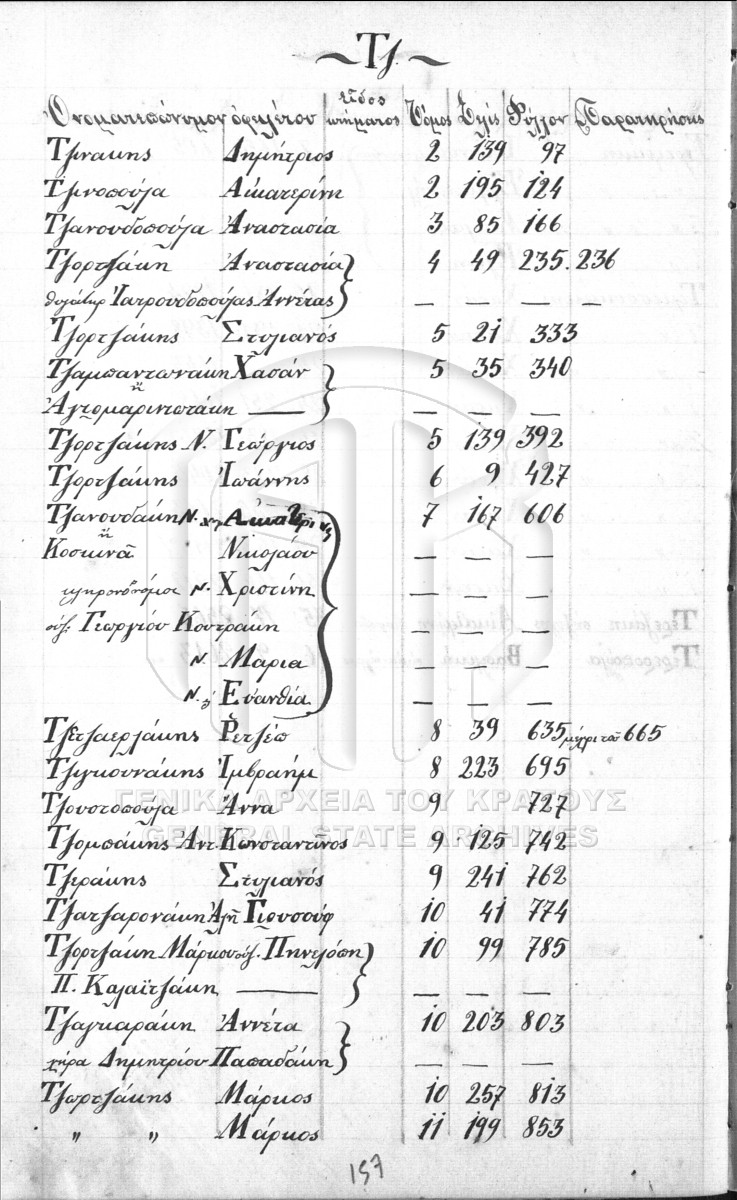 ~ Τζ. ~
Ὀνοματεπώνυμον ὀφειλέτου εἶδος κτήματος Τόμος Σελίς Φύλλον Παρατηρήσεις
Τζινάκης Δημήτριος 2 139 97
Τζινοπούλα Αἰκατερίνη 2 195 124
Τζανουδοπούλα Ἀναστασία 3 85 166
Τζορτζάκη Ἀναστασία 4 49 235.236
θυγάτηρ Ἰατρουδοπούλας Ἀννέτας — — — —
Τζορτζάκης Στυλιανός 5 21 333
Τζαμπαντωνάκη Χασάν 5 35 340
ἢ
Ἀγιομαρινιωτάκη — — — —
Τζορτζάκης Ν. Γεώργιος 5 139 392
Τζορτζάκης Ἰωάννης 6 9 427
Τζανουδάκη Ν. χη Αἰκατερίνη 7 167 606
ἢ
Κοσκινᾶ Νικολάου — — —
κληρονόμοι Ν. Χριστίνη — — —
σύζ. Γεωργίου Κουτράκη — — —
Ν. Μαρία — — —
Ν. ἡ Εὐανθία — — —
Τζετζαερλάκης Ρετζέπ 8 39 635 μέχρι τοῦ 665
Τζιγκουνάκης Ἰμβραήμ 8 223 695
Τζουστοπούλα Ἄννα 9 727
Τζομπάκης Ἀντ. Κωνσταντῖνος 9 125 742
Τζιράκης Στυλιανός 9 241 762
Τζατζαρονάκη Ἀλῆ Γιουσούφ 10 41 774
Τζορτζάκη Μάρκου σύζ. Πηνελόπη 10 99 785
Π. Καλαϊτζάκη — — — —
Τζαγκαράκη Ἀννέτα 10 203 803
χήρα Δημητρίου Παπαδάκη — — —
Τζωρτζάκης Μάρκος 10 257 813
„ „ Μάρκος 11 199 853
157
ΓΕΝΙΚΑ ΑΡΧΕΙΑ ΤΟΥ ΚΡΑΤΟΥΣ
GENERAL STATE ARCHIVES